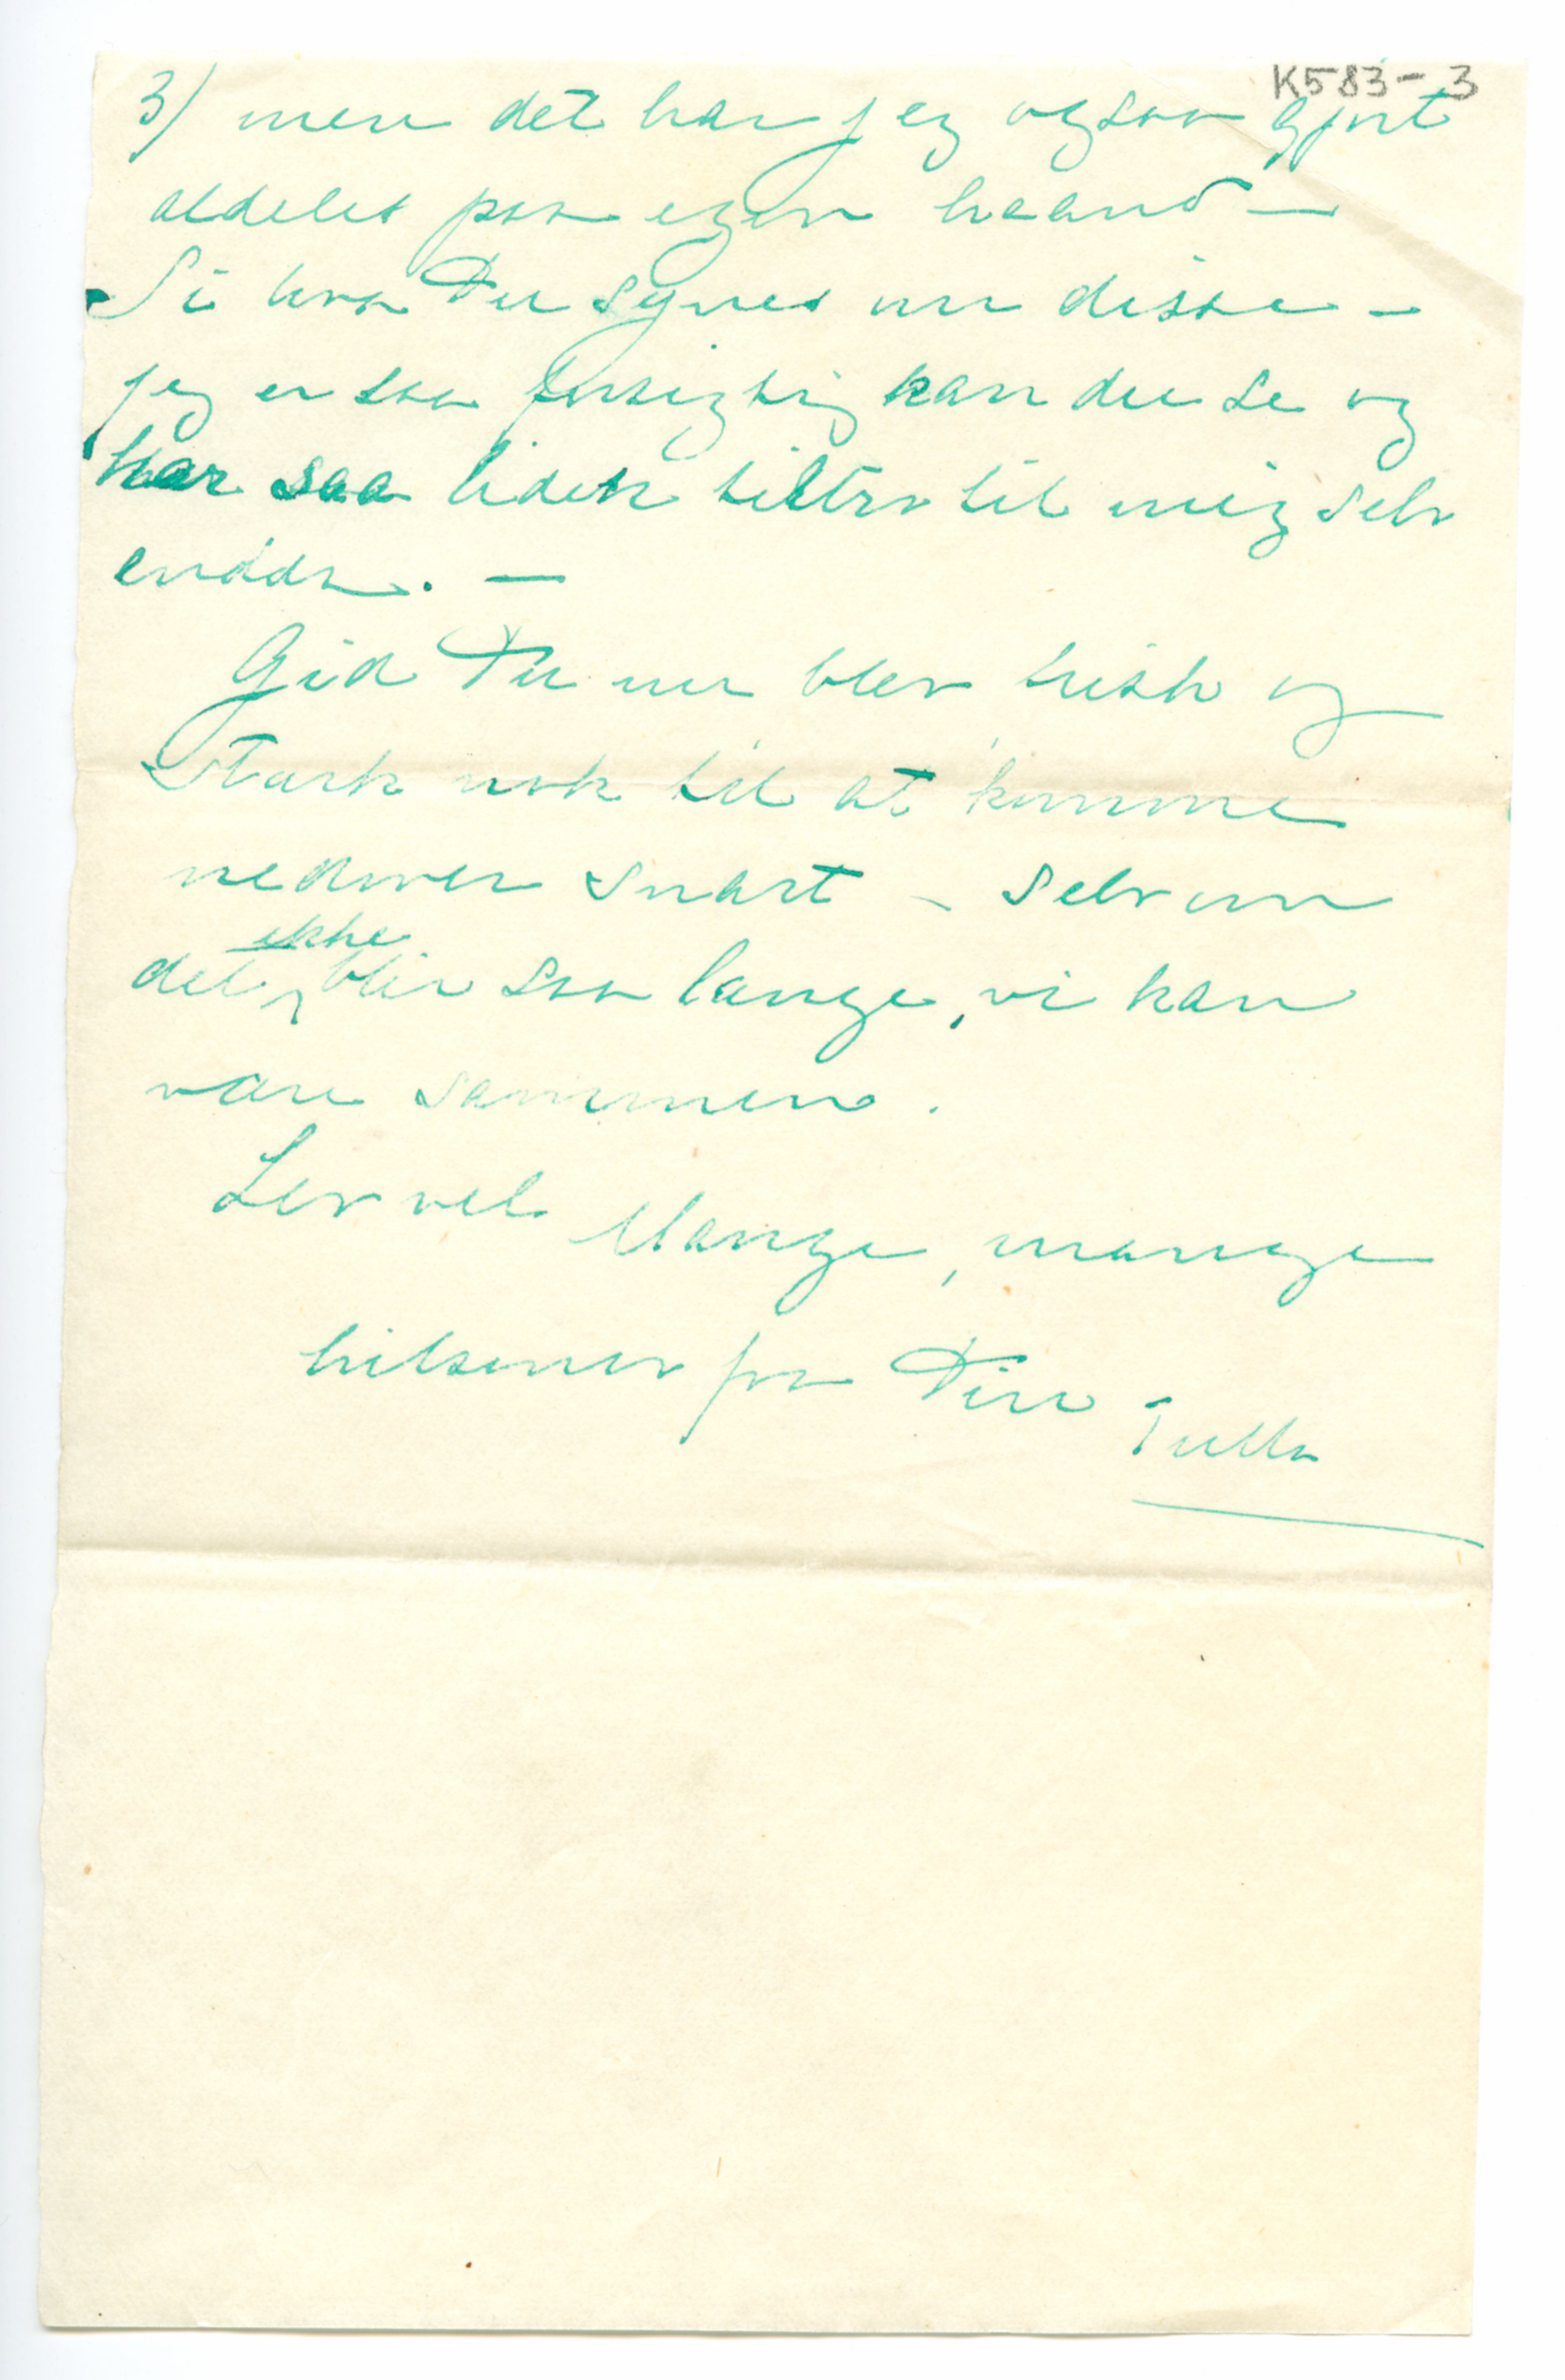 K583-3
3) men det har jeg ogsaa gjort
aldeles paa egen haand —
Si hva Du synes om disse –
jeg er saa forsigtig kan du se og
har saa liden tiltro til mig selv
endda. —
Gid Du nu blev frisk og
stærk nok til at komme
nedover snart – selv om
det ikke blir saa længe, vi kan
være sammen.
Lev vel Mange, mange
hilsener fra Din Tulla